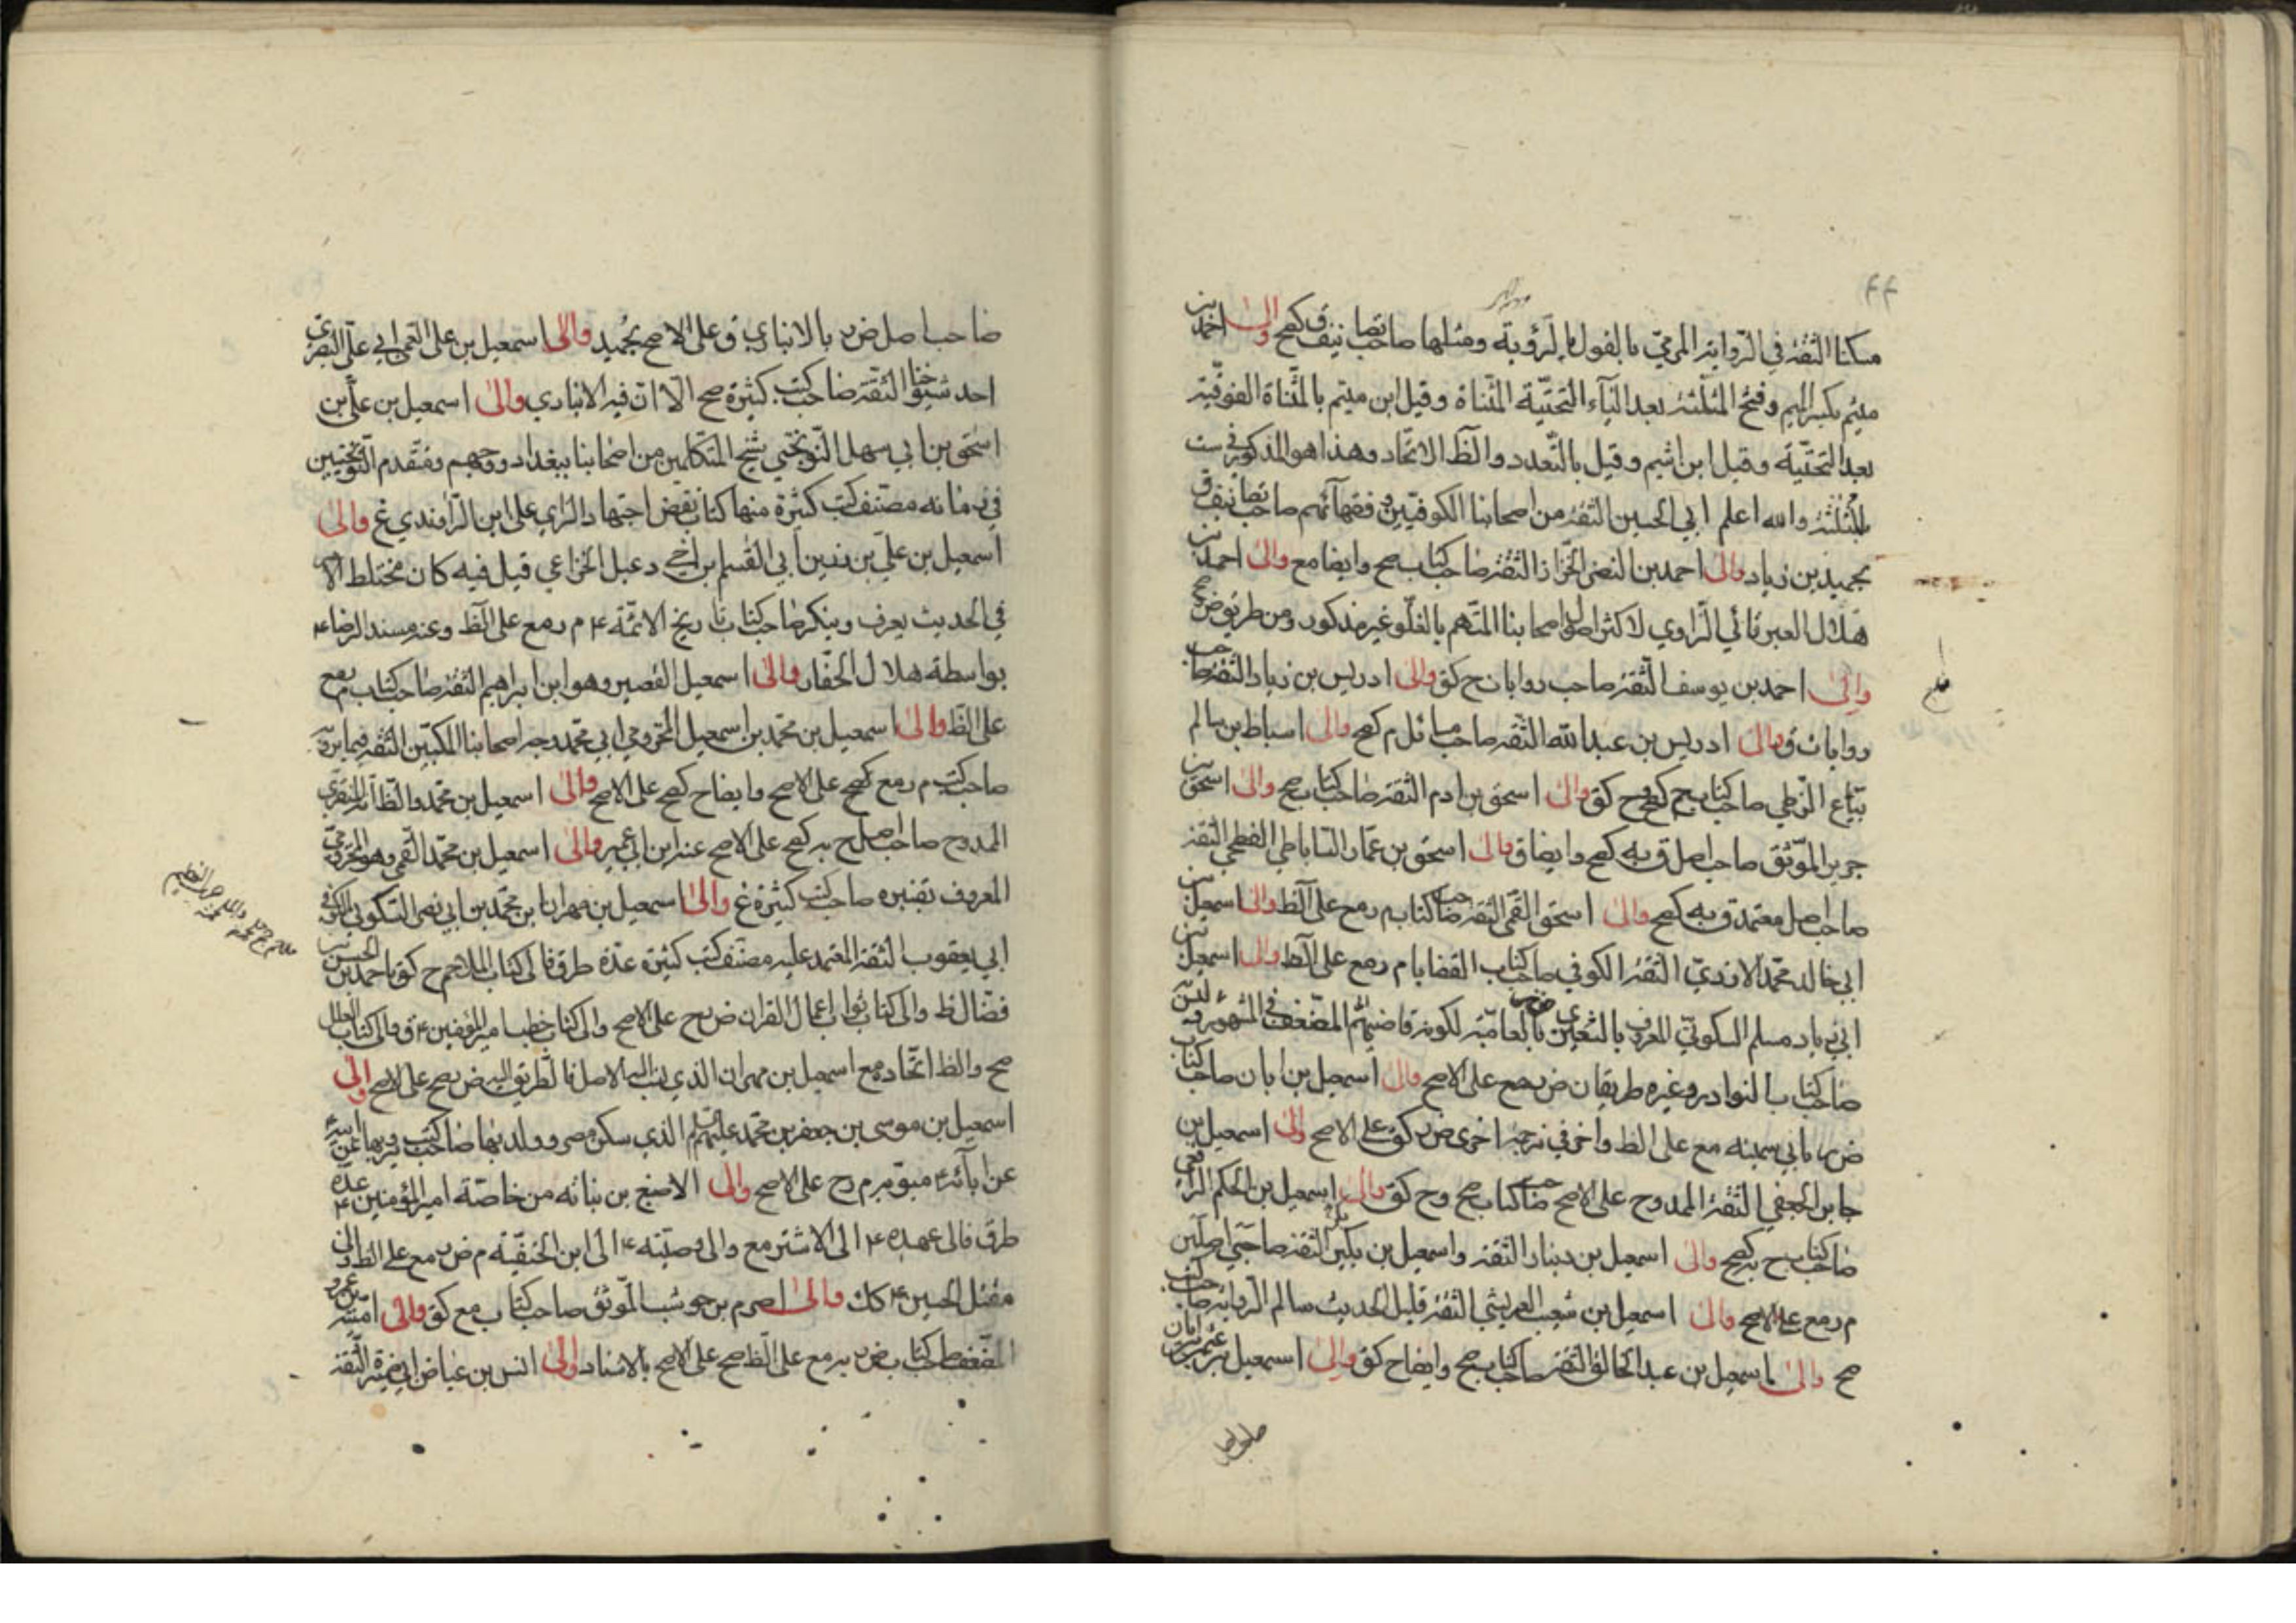 مسكنا الثقة في الرواية المرمي بالقول بالرؤية ومثلها صاحب تصانيف ق كصح والى احمد بن
ميثم بكسر الميم وفتح المثلثة بعد الياء التحتية المثناة وقيل ابن ميتم بالمثناة الفوقية
بعد التحتية وقيل ابن اشيم وقيل بالتعدد والظ الاتحاد وهذا هو المذكور في ست
بالمثلثة والله اعلم ابي الحسين الثقة من اصحابنا الكوفيين وفقهائهم صاحب تصانيف ق
بحميد بن زياد والى احمد بن النضر الخزاز الثقة صاحب كتاب صح وايضا مع والى احمد بن
هلال العبرتائي الراوي لاكثر اصول اصحابنا المتهم بالغلو غير مذكور ومن طريق ض صح
والى احمد بن يوسف الثقة صاحب روايات ح كق والى ادريس بن زياد الثقة صاحب
روايات ق والى ادريس بن عبد الله الثقة صاحب مسائل م كصح والى اسباط بن سالم
بياع الزطي صاحب كتاب صح كصح وح كق والى اسحق بن ادم الثقة صاحب كتاب صح والى اسحق بن
جرير الموثق صاحب اصل ق به كصح وايضا ق والى اسحق بن عمار الساباطي الفطحي الثقة
صاحب اصل معتمد ق به كصح والى اسحق القمي الثقة صاحب كتاب م رمع على الظ والى اسمعيل بن
ابي خالد محمد الازدي الثقة الكوفي صاحب كتاب القضايا م رمع على الظ والى اسمعيل بن
ابي زياد مسلم السكوني المعروف بالشعيري بالعامية لكونه قاضيهم المضعف في المشهور
صاحب كتاب النوادر وغيره طريقان ض بجمع على الاصح والى اسمعيل بن ابان صاحب كتاب
ض ر بابي سمينه مع على الظ واخر في ترجمة اخرى ض ر كق على الاصح والى اسمعيل بن
جابر الجعفي الثقة الممدوح على الاصح صاحب كتاب صح وح كق والى اسمعيل بن الحكم الرافعي
صاحب كتاب ح به كصح والى اسمعيل بن دينار الثقة واسمعيل بن بكير الثقة صاحبي اصلين
م رمع على الاصح والى اسمعيل بن شعيب العريشي الثقة قليل الحديث سالم الرواية صاحب كتب
صح والى اسمعيل بن عبد الخالق الثقة صاحب كتاب صح وايضاح كق والى اسمعيل بن عثمن بن ابان
صاحب اصل
صاحب اصل ض ر بالانباري ق على الاصح بحميد والى اسمعيل بن على العمى ابي على البصري
احد شيوخنا الثقة صاحب كتب كثيرة صح الا ان فيه الانباري والى اسمعيل بن على بن
اسحق بن ابي سهل النوبختي شيخ المتكلمين من اصحابنا ببغداد ووجههم ومتقدم النوبختيين
في زمانه مصنف كتب كثيرة منها كتاب نقض اجتهاد الراي على ابن الراوندي غ والى
اسمعيل بن على بن رزين ابي القسم ابن اخي دعبل الخزاعي قيل فيه كان مختلط الامر
في الحديث يعرف وينكر صاحب كتاب تاريخ الائمة ع م رمع على الظ وعنه مسند الرضا ع
بواسطة هلال الحفار والى اسمعيل القصير وهو ابن ابراهيم الثقة صاحب كتاب م رمع
على الظ والى اسمعيل بن محمد بن اسمعيل المخزومي ابي محمد وجه اصحابنا المكيين الثقة فيما يرويه
صاحب كتب م رمع كصح على الاصح وايضاح كصح على الاصح والى اسمعيل بن محمد والظ انه المنقري
الممدوح صاحب اصل ح به كصح على الاصح عنه ابن ابي عمير والى اسمعيل بن محمد القمي وهو المخزومي
المعروف بقنبره صاحب كتب كثيرة غ والى اسمعيل بن مهران بن محمد بن ابي نصر السكوني الكوفي
ابي يعقوب الثقة المعتمد عليه مصنف كتب كثيرة عدة طرق فالى كتاب الملاحم ح كق باحمد بن الحسن بن
فضال ظ والى كتاب ثواب اعمال القران ض بح على الاصح والى كتاب خطب امير المؤمنين ع ق والى كتاب العلل
صح والظ اتحاده مع اسمعيل بن مهران الذي نسب اليه الاصل فالطريق اليه ض بصح على الاصح والى
اسمعيل بن موسى بن جعفر بن محمد عليهم السلام الذي سكن مصر وولده بها صاحب كتب يرويها عن ابيه
عن ابائه ع مبوبة م رح على الاصح والى الاصبغ بن نباته من خاصة امير المؤمنين ع عدة
طرق فالى عهده ع الى الاشتر مع والى وصيته ع الى ابن الحنفية م ض ر مع على الظ والى
مقتل الحسين ع كك والى اصرم بن حوشب الموثق صاحب كتاب مع كق والى امية بن عمرو
المضعف صاحب كتاب ض ر به رمع على الظ صح على الاصح بالاسناد والى انس بن عياض ابي ضمرة الثقة